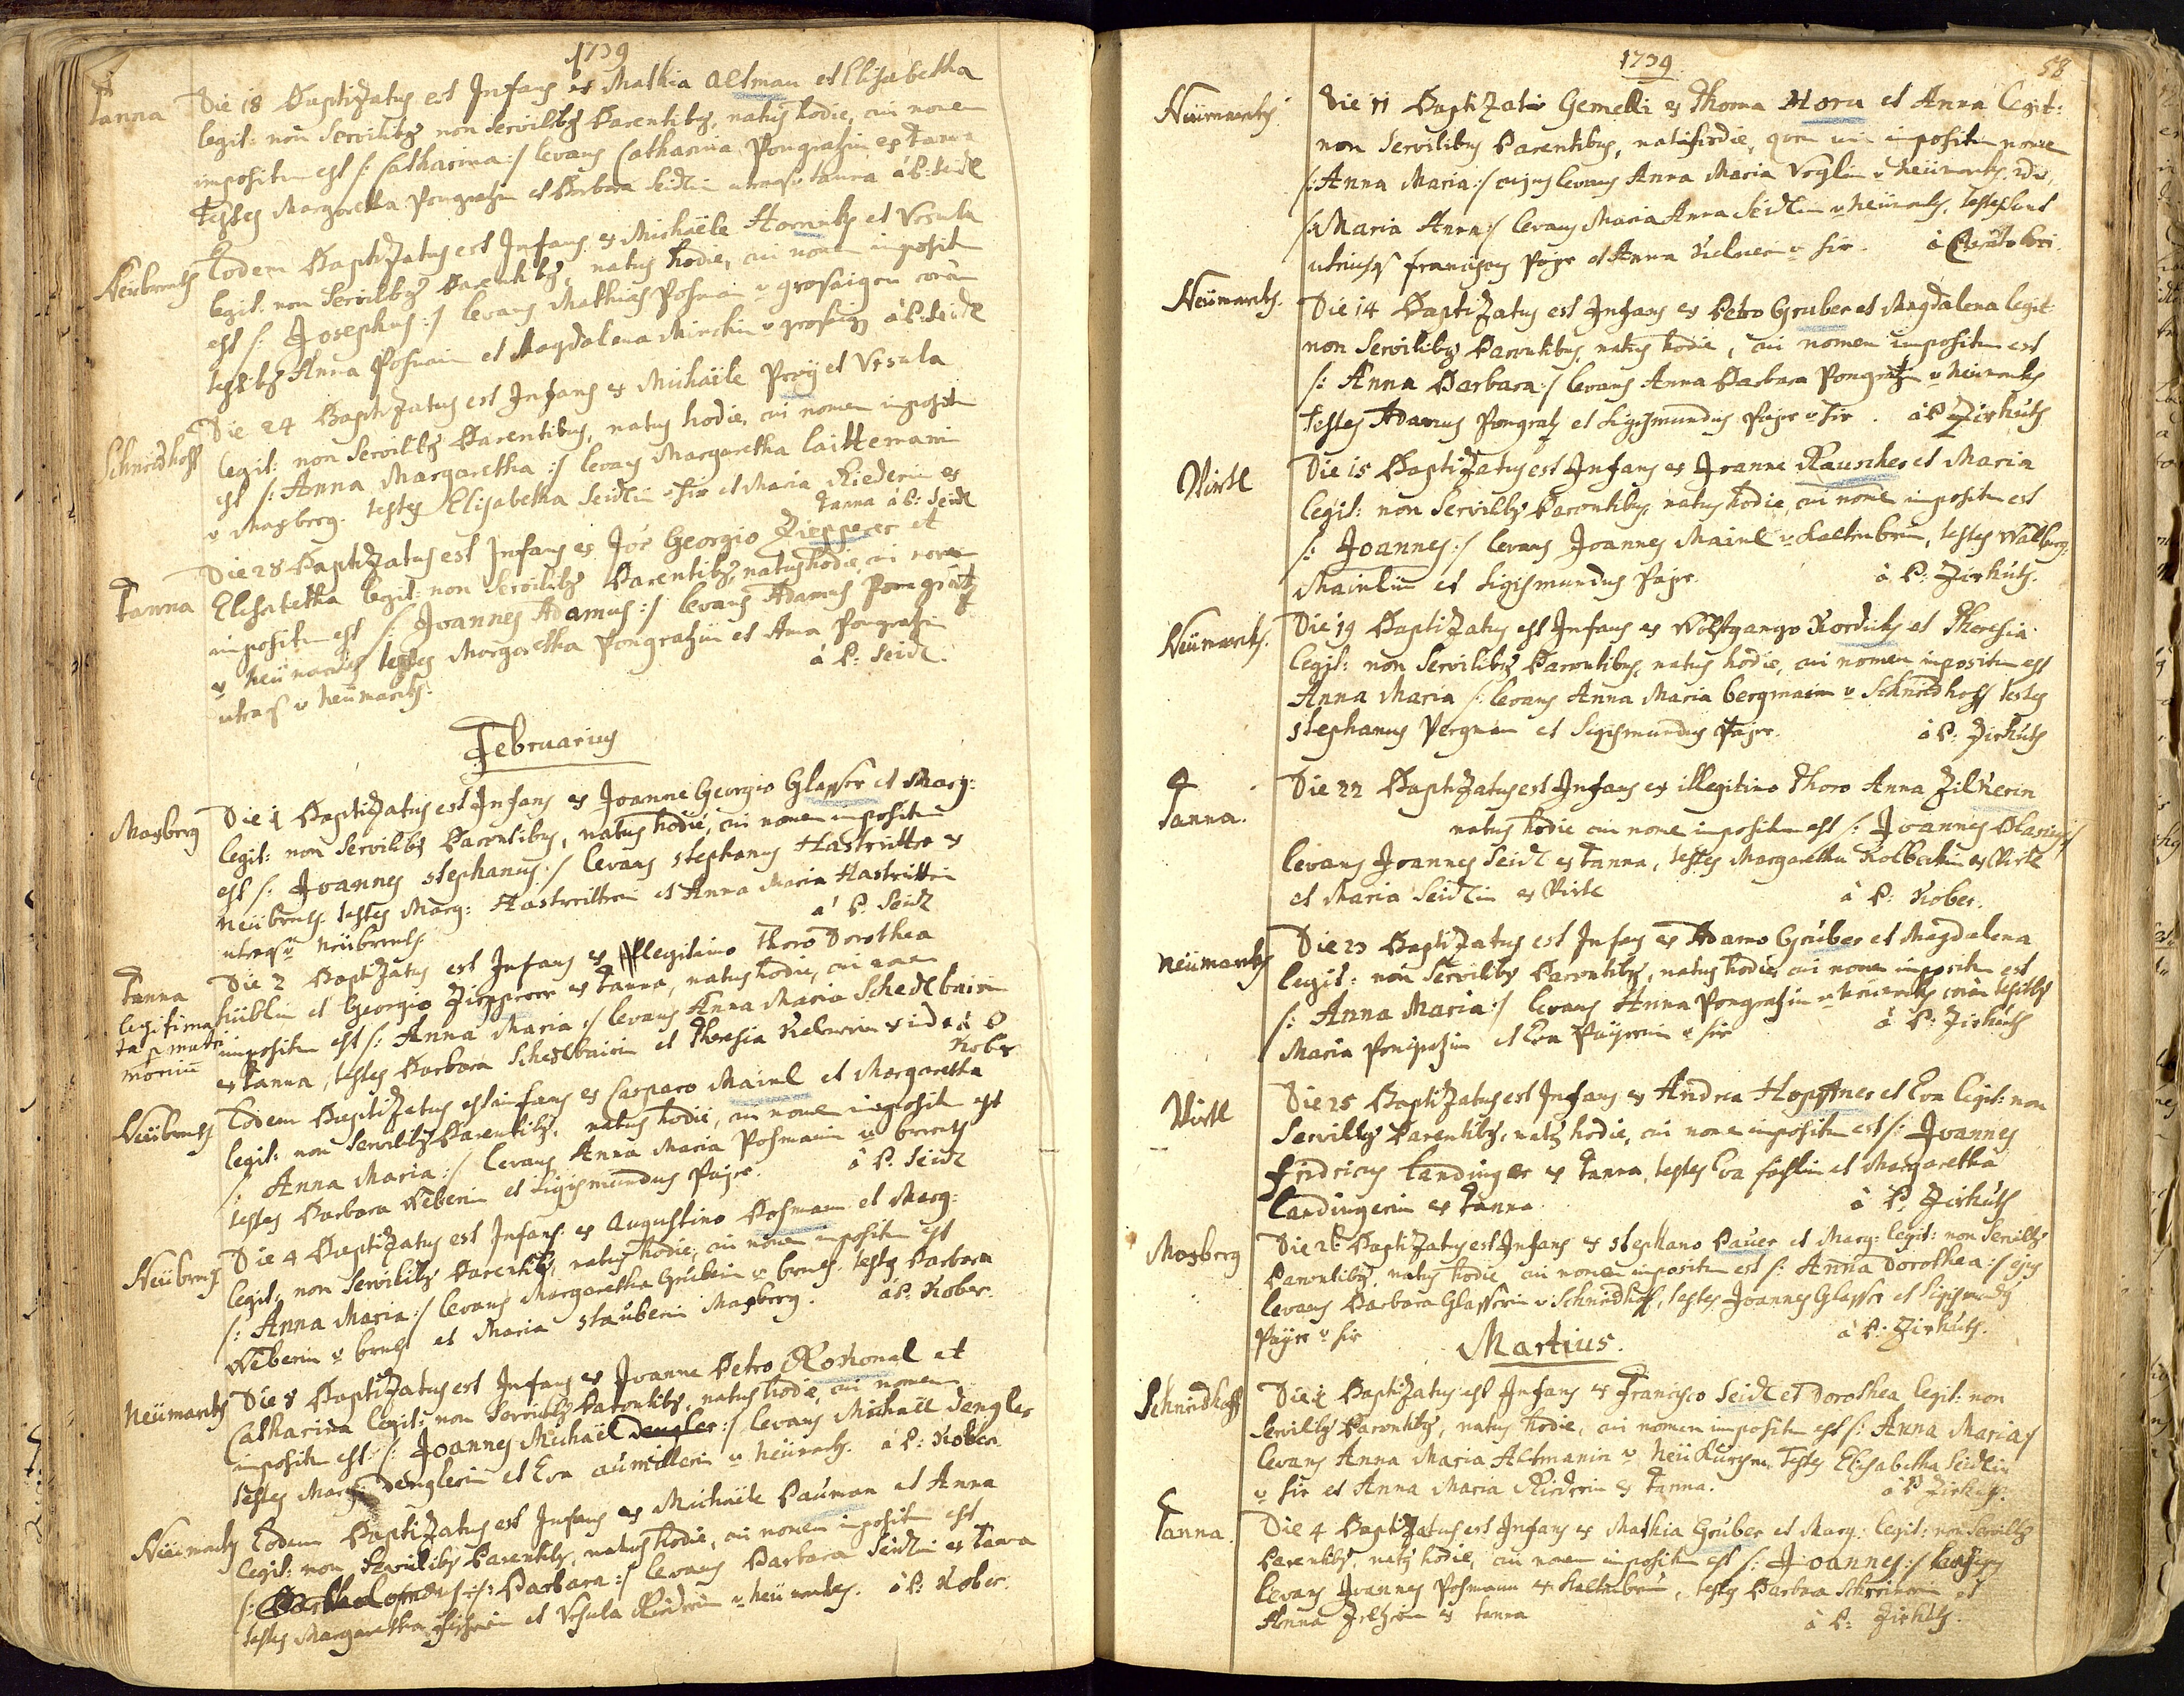 1739
Tanna Die 18 Baptizatus est Infans ex Mathia Altman et Elisabetha
legit: non Servilibus non servilibus Parentibus, natus hodie, cui nomen
impositum est /: Catharina :/ levans Catharina Pongratzin ex Tanna
Testes Margaretha Pongratzin et Barbara Seidlin utraque Tanna à P: Seidl
Neübrentz Eodem Baptizatus est Infans ex Michaële Hornik et Ursula
legit: non Servilibus Parentibus, natus hodie, cui nomen impositum
est /: Josephus :/ levans Mathias Posman v grosaigen coram
testibus Anna Posmanin et Magdalena v grosaign à P: Seidl
Schneidhoff Die 24 Baptizatus est Infans ex Michaële et Ursula
legit: non Servilibus Parentibus, natus hodie, cui nomen impositum
est /: Anna Margaretha :/ levans Margaretha
v Maxberg. testes Elisabetha Seidlin v hir et Maria Riederin ex
Tanna à P: Seidl
Tanna Die 28 Baptizatus est Infans ex Joe Georgio Ziepperer et
Elisabetha legit: non Servilibus Parentibus, natus hodie, cui nomen
impositum est /: Joannes Adamus :/ levans Adamus Pongratz
v Neümarckt testes Margaretha Pongratzin et Anna Pongratzin
utraque v Neümarckt. à P: Seidl.
Februarius
Maxberg Die 1 Baptizatus est Infans ex Joanne Georgio Glasser et Marg:
legit: non Servilibus Parentibus, natus hodie, cui nomen impositum
est /: Joannes Stephanus :/ levans Stephanus Hastritter ex
Neübrentz testes Marg: Hastritterin et Anna Maria Hastritterin
utraque v Neübrentz à P: Seidl
Tanna Die 2 Baptizatus est Infans ex Illegitimo Thoro Dorothea
legitima et Georgio Ziepperer ex Tanna, natus hodie, cui nomen
ta p matri impositum est /: Anna Maria :/ levans Anna Maria Schedlbairin
monium ex Tanna, testes Barbara Schedlbairin et Theresia à P
Kober
Neübrentz Eodem Baptizatus est infans ex Casparo Mainl et Margaretha
legit: non Servilibus Parentibus, natus hodie, cui nomen impositum est
/: Anna Maria :/ levans Anna Maria Posmanin v brentz
testes Barbara Weberin et Sigismundus Payr. à P: Seidl
Neübrentz Die 4 Baptizatus est Infans ex Augustino Posmann et Marg:
legit: non Servilibus Parentibus, natus hodie, cui nomen impositum est
/: Anna Maria :/ levans Margaretha v brentz. testes Barbara
Weberin v brentz et Maria Stauberin Maxberg. à P: Kober.
Neümarckt Die 8 Baptizatus est Infans ex Joanne Petro et
Catharina legit: non Servilibus Parentibus, natus hodie, cui nomen
impositum est /: Joannes Michaël Dengler :/ levans Michaël Dengler
testes Marg: Denglerin et Eva v Neümarckt. à P: Kober.
Neümarckt Eodem Baptizatus est Infans ex Michaële Pauman et Anna
legit: non Servilibus Parentibus, natus hodie, cui nomen impositum est
/: Bartholomæus :/: Barbara :/ levans Barbara Seidlin ex Tanna
testes Margaretha et Ursula Riederin v Neümarckt. à P: Kober.
1739 58
Neümarckt Die 11 Baptizati Gemelli ex Thoma Horn et Anna legit:
non Servilibus Parentibus, nati hodie, impositum nomen
/: Anna Maria :/ cujus levans Anna Maria Voglin v Neümarckt, 2do,
/: Maria Anna :/ levans Maria Anna Seidlin v Neümarckt, testes sunt
utriusque Franciscus Payr et Anna v hir.
Neümarckt. Die 14 Baptizatus est Infans ex Petro Gruber et Magdalena legit
non Servilibus Parentibus, natus hodie, cui nomen impositum est
/: Anna Barbara :/ levans Anna Barbara Pongratzin v Neümarckt
testes Adamus Pongratz et Sigismundus Payr v hir. à P Zirkuts
Virtl Die 15 Baptizatus est Infans ex Joanne Rauscher et Maria
legit: non Servilibus Parentibus, natus hodie, cui nomen impositum est
/: Joannes :/ levans Joannes Mainl v Kaltenbrun, testes Walburg:
Mainlin et Sigismundus Payr. à P: Zirkuts.
Neümarckt. Die 19 Baptizatus est Infans ex Wolfgango Kordick et Theresia
legit: non Servilibus Parentibus, natus hodie, cui nomen impositum est
Anna Maria /: levans Anna Maria bergmanin v Schneidhoff testes
Stephanus Pergman et Sigismundus Payr. à P: Zirkuts
Tanna. Die 22 Baptizatus est Infans ex illegitimo Thoro Anna Zilherin
natus hodie cui nomen impositum est /: Joannes Blasius :/
levans Joannes Seidl ex Tanna, testes Margaretha Kolbeckin ex Virtl
et Maria Seidlin ex Virtl à P: Kober.
Neümarckt Die 23 Baptizatus est Infans ex Adamo Gruber et Magdalena
legit: non Servilibus Parentibus, natus hodie, cui nomen impositum est
/: Anna Maria :/ levans Anna Pongratzin v Neümarckt, coram testibus
Maria Pongratzin et Eva Payrin v hir à P: Zirkuts
Virtl Die 25 Baptizatus est Infans ex Andrea Hopffner et Eva legit: non
Servilibus Parentibus, natus hodie, cui nomen impositum est /: Joannes
Fridricus Landinger ex Tanna, testes Eva et Margaretha
Landingerin ex Tanna à P: Zirkuts
Maxberg Die 2 Baptizatus est Infans ex Stephano Pauer et Marg: legit: non Servilibus
Parentibus, natus hodie cui nomen impositum est /: Anna Dorothea :/ ejus
levans Barbara Glasserin v Schneidhoff, testes Joannes Glasser et Sigismundus
Payr v hir à P: Zirkuts.
Martius.
Schneidhoff Die 1 Baptizatus est Infans ex Francisco Seidl et Dorothea legit: non
Servilibus Parentibus, natus hodie, cui nomen impositum est /: Anna Maria /
levans Anna Maria Altmanin v Testes Elisabetha Seidlin
v hir et Anna Maria Riederin ex Tanna. à P Zirkuts.
Tanna. Die 4 Baptizatus est Infans ex Mathia Gruber et Marg: legit: non Servilibus
Parentibus, natus hodie, cui nomen impositum est /: Joannes :/
levans Joannes Posmann ex Kaltenbrun, testes Barbara et
Anna ex Tanna à P: Zirkuts